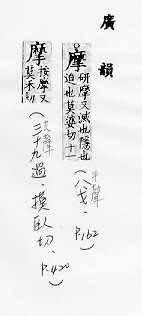 廣韻
摩 研摩又滅也隱也
迫也莫婆切十一
(八戈，P.162)
平聲
摩 按摩又
莫禾切
(三十九過，摸臥切，P.420)
去聲